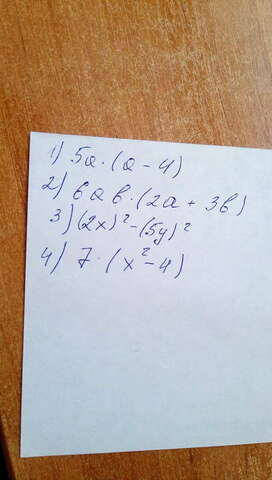 1) 5a·(a-4)
2) 6ab·(2a+3b)
3) (2x)²-(5y)²
4) 7·(x²-4)